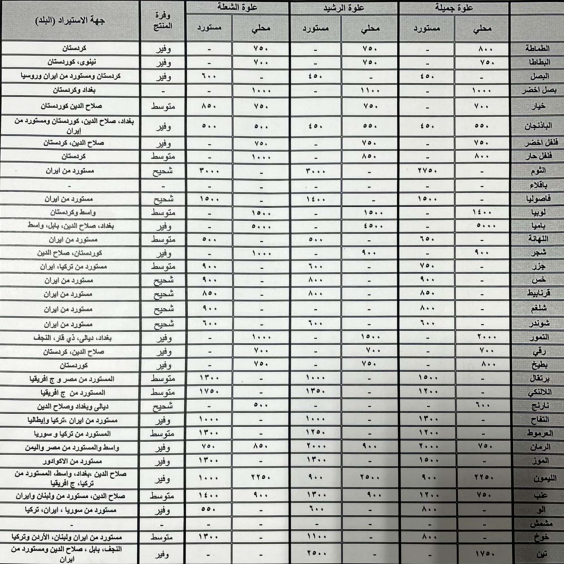 علوة جميلة علوة الرشيد علوة الشعلة وفرة المنتج جهة الاستيراد (البلد)
محلي مستورد محلي مستورد محلي مستورد
الطماطة ٨٠٠ - ٧٥٠ - ٧٥٠ - وفير كردستان
البطاطا ٧٥٠ - ٧٥٠ - ٧٠٠ - وفير نينوى، كوردستان
البصل - ٤٥٠ - ٤٥٠ - ٦٠٠ وفير كردستان ومستورد من ايران وروسيا
بصل اخضر ١٠٠٠ - ١١٠٠ - ١٠٠٠ - - بغداد وكردستان
خيار ٧٠٠ - ٧٥٠ - ٧٥٠ ٨٥٠ متوسط صلاح الدين كوردستان
الباذنجان ٥٥٠ ٤٥٠ ٥٥٠ ٤٥٠ ٥٠٠ ٥٠٠ وفير بغداد، صلاح الدين، كوردستان ومستورد من
إيران
فلفل اخضر ٧٥٠ - ٧٥٠ - ٧٥٠ - وفير صلاح الدين، كردستان
فلفل حار ٨٠٠ - ٨٥٠ - ١٠٠٠ - متوسط كردستان
الثوم - ٢٧٥٠ - ٣٠٠٠ - ٣٠٠٠ شحيح مستورد من ايران
باقلاء - - - - - - - -
فاصوليا - ١٥٠٠ - ١٤٠٠ - ١٥٠٠ شحيح مستورد من ايران
لوبيا ١٤٠٠ - ١٥٠٠ - ١٥٠٠ - متوسط واسط وكردستان
باميا ٥٠٠٠ - ٤٥٠٠ - ٥٠٠٠ - وفير بغداد، صلاح الدين، بابل، واسط
اللهانة - ٦٥٠ - ٥٠٠ - ٥٠٠ متوسط مستورد من ايران
شجر ٩٠٠ - ٩٠٠ - ١٠٠٠ - وفير كوردستان، صلاح الدين
جزر - ٧٥٠ - ٦٠٠ - ٩٠٠ متوسط مستورد من تركيا، ايران
خس - ٩٠٠ - ٨٠٠ - ٩٠٠ شحيح مستورد من ايران
قرنابيط - ٨٥٠ - ٨٠٠ - ٨٥٠ شحيح مستورد من ايران
شلغم - ٨٠٠ - - - ٩٠٠ شحيح مستورد من ايران
شوندر - ٦٠٠ - ٦٠٠ - ٦٠٠ شحيح مستورد من ايران
التمور ٢٠٠٠ - ١٥٠٠ - ١٠٠٠ - وفير بغداد، ديالى، ذي قار، النجف
رقي ٧٠٠ - ٧٠٠ - ٧٠٠ - وفير صلاح الدين، كردستان
بطيخ ٨٠٠ - ٧٥٠ - ٧٥٠ - وفير كوردستان
برتقال - ١٥٠٠ - ١٠٠٠ - ١٣٠٠ متوسط المستورد من مصر و ج افريقيا
اللالنكي - ١٢٠٠ - ١٣٥٠ - ١٧٥٠ متوسط المستورد من ج افريقيا
نارنج ٦٠٠ - - - ٥٠٠ - شحيح ديالى وبغداد وصلاح الدين
التفاح - ١٣٠٠ - ١٠٠٠ - ١٠٠٠ وفير مستورد من ايران ،تركيا وإيطاليا
العرموط - ١٢٠٠ - ١٢٥٠ - ١٣٠٠ متوسط المستورد من تركيا و سوريا
الرمان ٧٥٠ ٢٠٠٠ ٩٠٠ ٢٠٠٠ ٨٥٠ ٧٥٠ وفير واسط والمستورد من مصر واليمن
الموز - ١٥٠٠ - ١٣٠٠ - ١٣٠٠ وفير مستورد من الاكوادور
الليمون ٢٢٥٠ ٩٠٠ ٢٥٠٠ ٩٠٠ ٢٢٥٠ ١٠٠٠ وفير صلاح الدين ،بغداد، واسط، المستورد من
تركيا، ج افريقيا
عنب ٧٥٠ ١٢٠٠ ٩٠٠ ١٣٠٠ ٩٠٠ ١٤٠٠ متوسط صلاح الدين، مستورد من ولبنان وايران
الو - ٨٠٠ - ٦٠٠ - ٥٥٠ وفير مستورد من سوريا ، ايران، تركيا
مشمش - - - - - -
خوخ - ٨٠٠ - ١١٠٠ - ١٣٠٠ متوسط مستورد من ايران ولبنان، الأردن وتركيا
تين ١٧٥٠ - - ٢٥٠٠ - - وفير النجف، بابل ، صلاح الدين ومستورد من
ايران